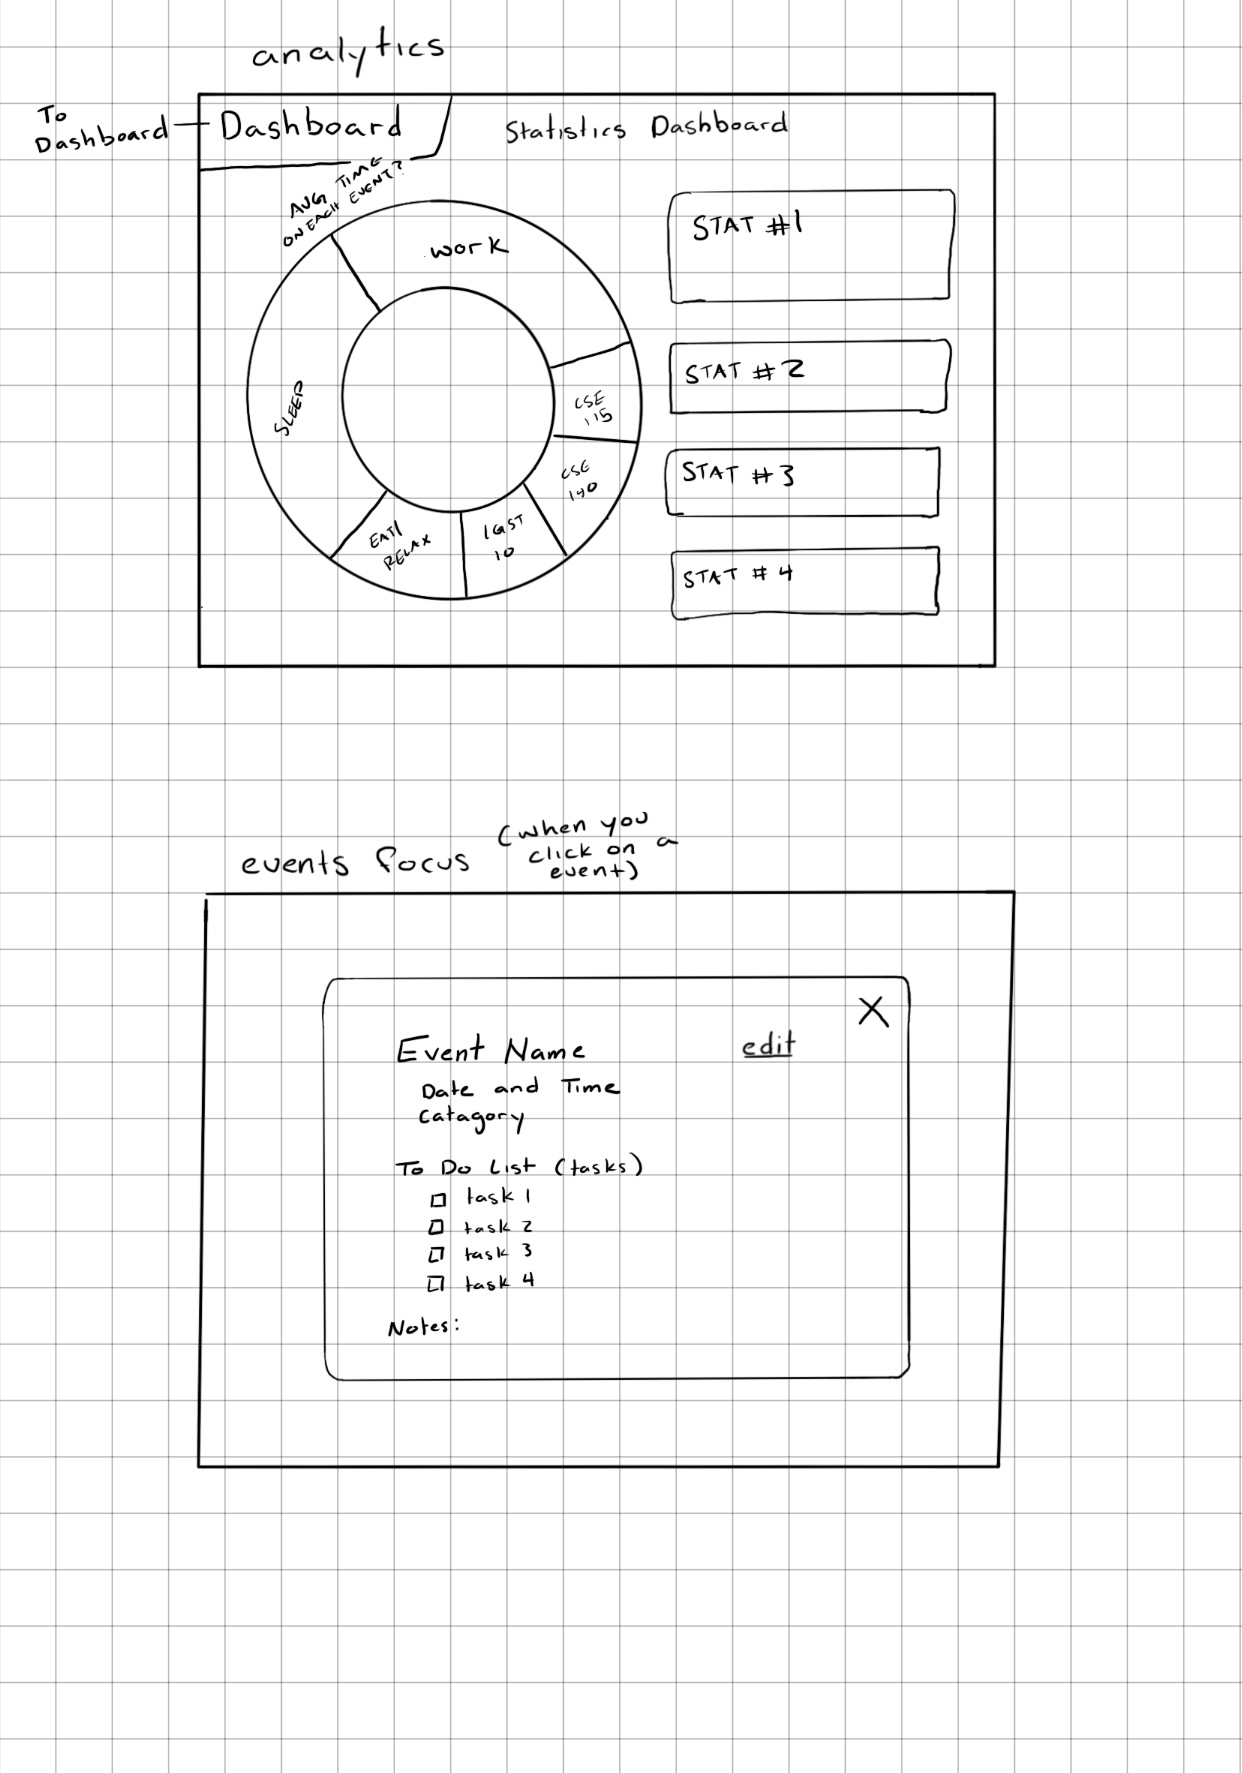 analytics
To
Dashboard
Dashboard
Statistics Dashboard
AVG TIME
ON EACH EVENT?
work
STAT #1
STAT #2
SLEEP
CSE
115
CSE
140
STAT #3
EAT/
RELAX
10
STAT #4
events focus
(when you
click on a
event)
X
Event Name
edit
Date and Time
Catagory
To Do List (tasks)
task 1
task 2
task 3
task 4
Notes: